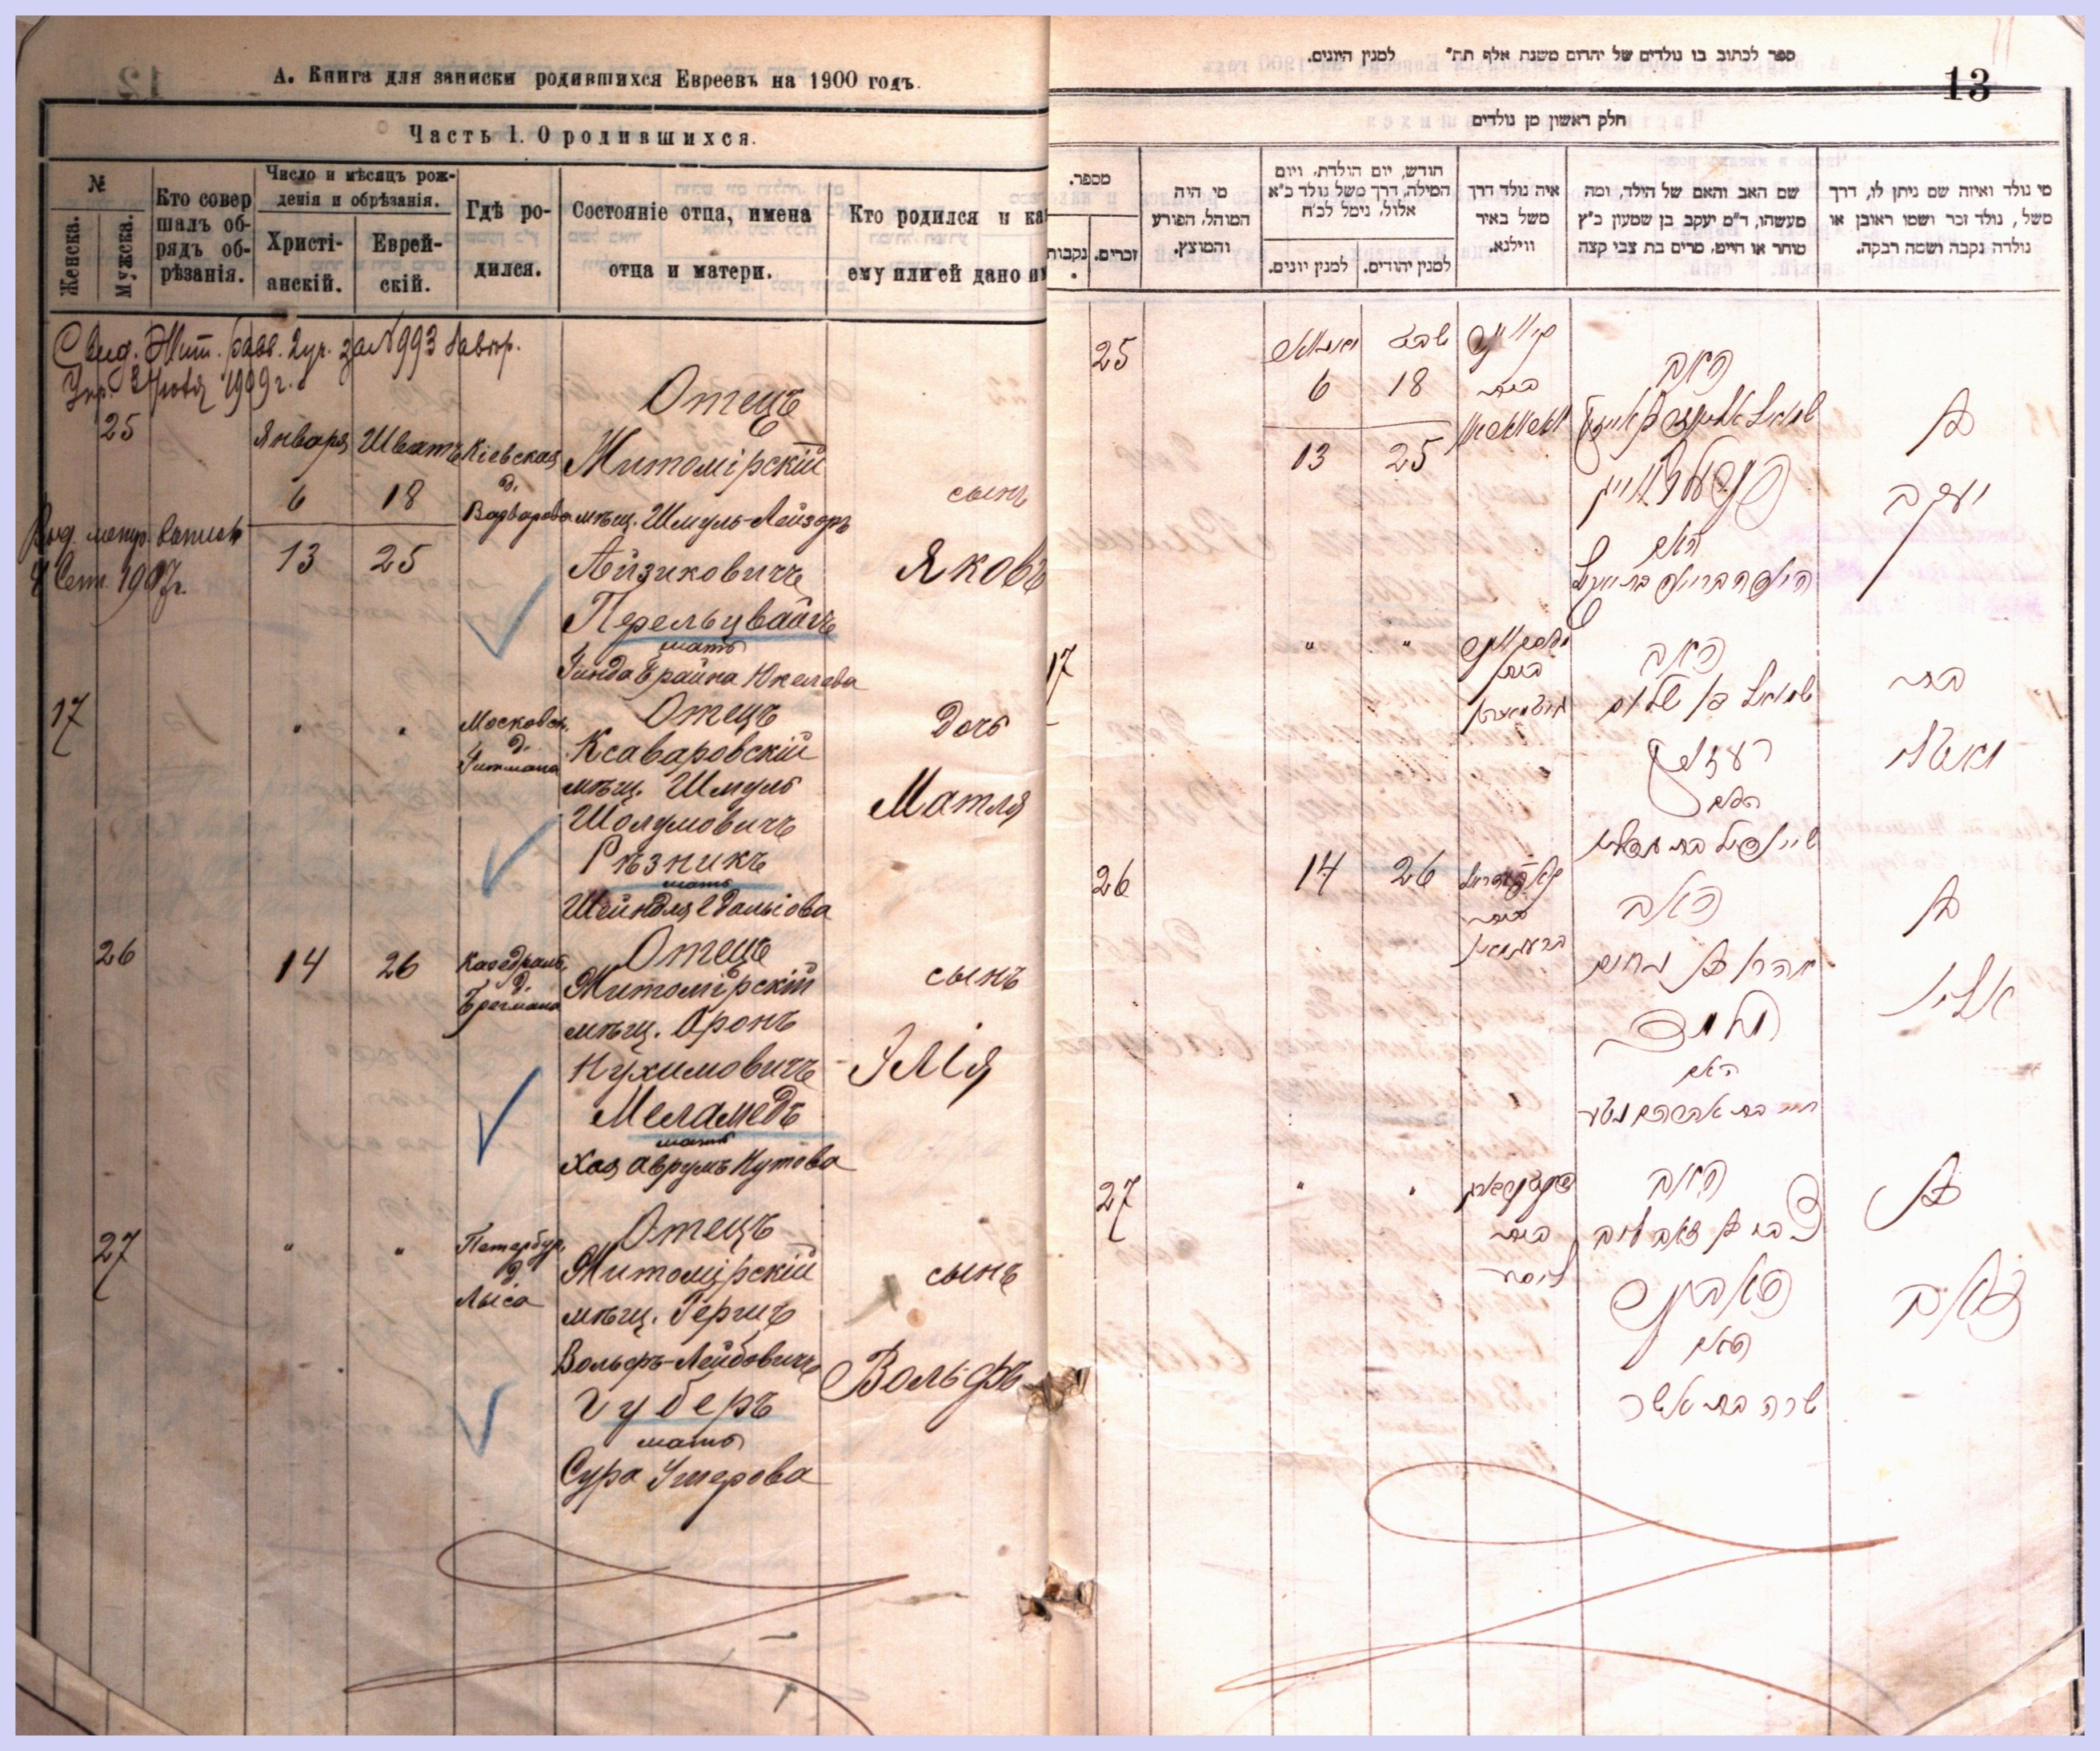 А. Книга для записки родившихся Евреевъ на 1900 годъ.
Часть I. О родившихся.
№
Женска.
Мужска.
Кто совер
шалъ об-
рядъ об-
рѣзанія.
Число и мѣсяцъ рож-
денія и обрѣзанія.
Христі-
анскій.
Еврей-
скій.
Гдѣ ро-
дился.
Состояніе отца, имена
отца и матери.
Кто родился и ка
ему или ей дано и
25
Января
Шватъ
6
18
13
25
Кіевская
д.
Отецъ
Житомірскій
мѣщ. Шмуль-Лейзоръ
Айзиковичъ
Перельцвайгъ
мать
сынъ
Яковъ
17
"
"
Московск.
д.
Гитмана
Отецъ
Ксаваровскій
мѣщ. Шмуль
Шолумовичъ
Рѣзникъ
мать
Дочь
Матля
26
14
26
Каѳедральн.
д.
Бреgмана
Отецъ
Житомірскій
мѣщ. Аронъ
Нухимовичъ
Меламедъ
мать
Хая Аврумъ Нутова
сынъ
Илія
27
"
"
Петербур.
д.
Лыса
Отецъ
Житомірскій
мѣщ. Гершъ
Вольфъ-Лейбовичъ
Губеръ
мать
Сура Ушерова
сынъ
Вольфъ
ספר לכתוב בו נולדים של יהודים משנת אלף תת״ למנין היונים.
13
חלק ראשון מן נולדים
מספר.
נקבות
זכרים.
מי היה
המוהל, הפורע
והמוצץ.
חודש, יום הולדת, ויום
המילה, דרך משל נולד כ״א
אלול, נימל לכ״ח
למנין יונים.
למנין יהודים.
איה נולד דרך
משל באיר
ווילנא.
שם האב והאם של הילד, ומה
מעשהו, ד״מ יעקב בן שמעון כ״ץ
סוחר או חייט, מרים בת צבי קצה
מי נולד ואיזה שם ניתן לו, דרך
משל, נולד זכר ושמו ראובן או
נולדה נקבה ושמה רבקה.
25
6
18
13
25
שבט
האב
האם
בן
יעקב
17
"
"
האב
שמואל בן שלום
רעזניק
האם
בת
מאטלי
26
14
26
האב
אהרן בן נחום
מלמד
האם
חיה בת אברהם נטע
בן
אליו
27
"
"
האב
צבי בן זאב ליב
האם
שרה בת אשר
בן
זאב